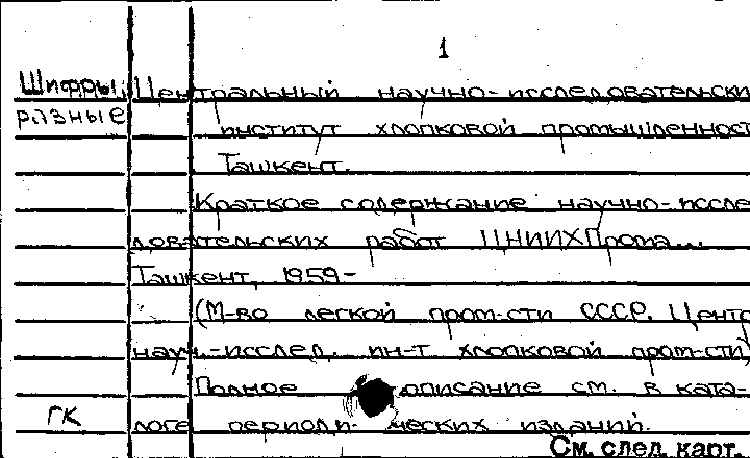 1
Шифры: Центральный научно-исследовательски
разные институт хлопковой промышленнос
Ташкент.
Краткое содержание научно-иссле
довательских работ ЦНИИХПрома...
Ташкент, 1959-
(М-во легкой пром-сти СССР. Центр
науч.-исслед. ин-т хлопковой пром-сти)
Полное описание см. в ката-
ГК логе периоди- ческих изданий.
См. след. карт.